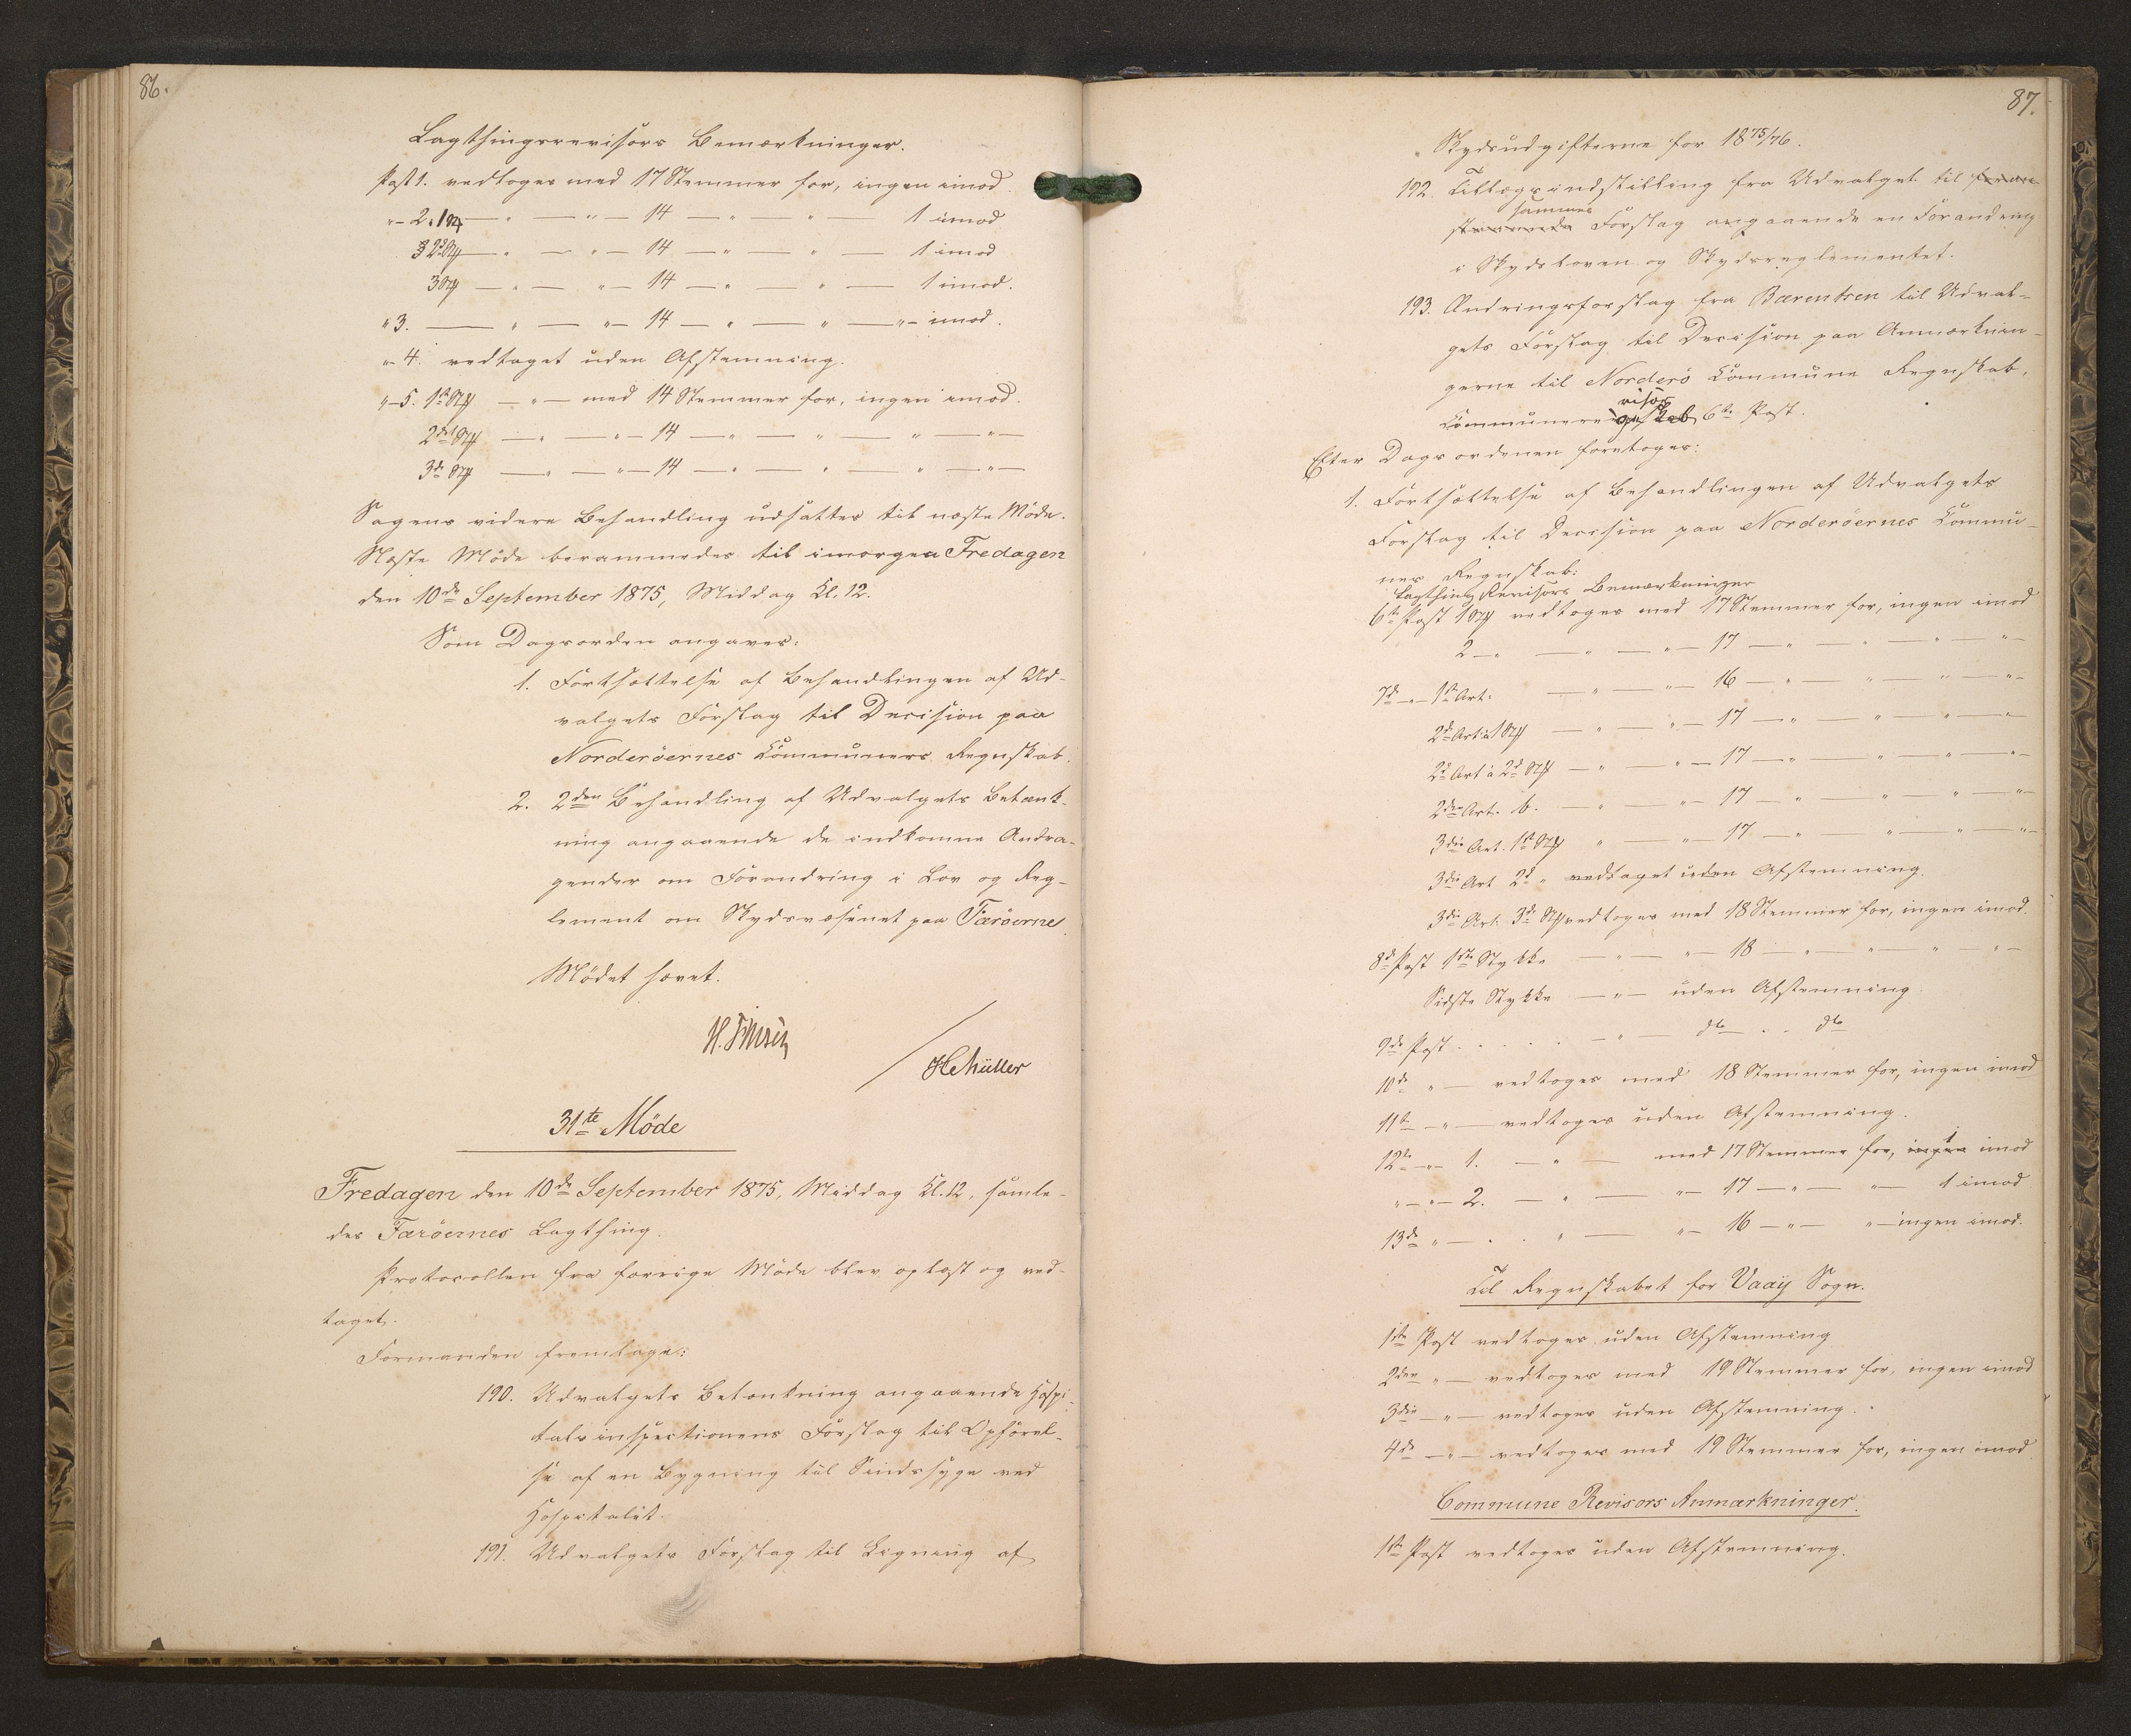 86.
Lagthingsrevisors Bemærkninger.
Post 1. vedtoges med 17 Stemmer for, ingen imod.
"– 2. 1 St — " — " — 14 — " — " — 1 imod
2d St — " — " — 14 — " — " — 1 imod
3 St — " — " — 14 — " — " — 1 imod.
" 3. — " — " — 14 — " — " — " – imod.
"– 4. vedtaget uden Afstemning.
"–5. 1ste St — " — med 14 Stemmer for, ingen imod.
2det St — " — " — 14 — " — " — " — " —
3de St — " — " — 14 — " — " — " — " —
Sagens videre Behandling udsattes til næste Møde.
Næste Møde berammedes til imorgen Fredagen
den 10de September 1875, Middag Kl. 12.
Som Dagsorden angaves:
1. Fortsættelse af Behandlingen af Ud-
valgets Forslag til Decision paa
Norderöernes Kommuners Regnskab.
2. 2den Behandling af Udvalgets Betænk-
ning angaaende de indkomne Andra-
gender om Forandring i Lov og Reg-
lement om Skydsvæsenet paa Færöerne.
Mødet hævet.
H. Finsen
/ HCMüller
31te Möde
Fredagen den 10de September 1875, Middag Kl. 12, samle-
des Færöernes Lagthing.
Protocollen fra forrige Møde blev oplæst og ved-
taget.
Formanden fremlagde:
190. Udvalgets Betænkning angaaende Hospi-
talsinspectionens Forslag til Opförel-
se af en Bygning til Sindssyge ved
Hospitalet.
191. Udvalgets Forslag til Ligning af
87.
Skydsudgifterne for 1875/76.
192. Tillægsindstilling fra Udvalget til
sammes
Forslag angaaende en Forandring
i Skydsloven og Skydsreglementet.
193. Ændringsforslag fra Bærentsen til Udval-
gets Forslag til Decision paa Anmærknin-
gerne til Norderö Kommune Regnskab,
visors
Kommunere 6te Post.
Efter Dagsordenen foretoges:
1. Fortsættelse af Behandlingen af Udvalgets
Forslag til Decision paa Norderöernes Kommu-
ners Regnskab:
Lagthings Revisors Bemærkninger
6te Post 1 St vedtoges med 17 Stemmer for, ingen imod
2 — " — " — " — 17 — " — " — " — "
7de – " – 1ste Art. — " — " — 16 — " — " — " — " –
2d Art: a 1 St — " — " — 17 — " — " — " — " –
2d Art a 2d St — " — " — 17 — " — " — " — " –
2den Art. b. — " — " — 17 — " — " — " — " –
3die Art. 1ste St " — " — 17 — " — " — " — " –
3die Art 2d " vedtaget uden Afstemning.
3die Art. 3de St vedtoges med 18 Stemmer for, ingen imod.
8de Post 1ste Stykke — " — " — 18 — " — " — " — " –
Sidste Stykke — " — uden Afstemning
9de Post . . . . . — " — dto . . dto
10de " — vedtoges med 18 Stemmer for, ingen imod
11te – " — vedtoges uden Afstemning.
12te – " – 1. — " — med 17 Stemmer for, ingen 1 imod
" – " – 2. — " — " – 17 — " — " — 1 imod
13de " — . . " — " – 16 — " — " – ingen imod.
Til Regnskabet for Vaaij Sogn.
1ste Post vedtoges uden Afstemning
2den " — vedtoges med 19 Stemmer for, ingen imod
3die – " — vedtoges uden Afstemning.
4de — " — vedtoges med 19 Stemmer for, ingen imod.
Commune Revisors Anmærkninger.
1ste Post vedtoges uden Afstemning.